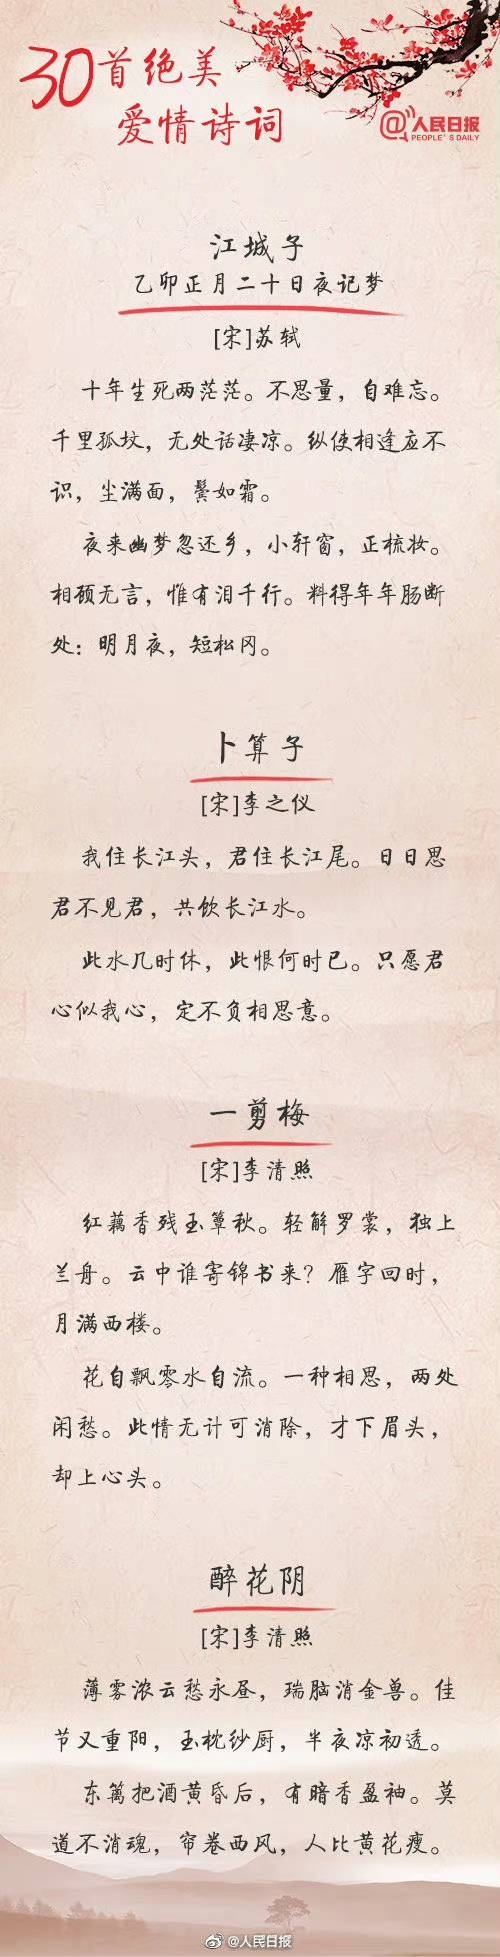 30首绝美
爱情诗词
@人民日报
PEOPLE'S DAILY
江城子
乙卯正月二十日夜记梦
[宋]苏轼
十年生死两茫茫。不思量，自难忘。
千里孤坟，无处话凄凉。纵使相逢应不
识，尘满面，鬓如霜。
夜来幽梦忽还乡，小轩窗，正梳妆。
相顾无言，惟有泪千行。料得年年肠断
处：明月夜，短松冈。
卜算子
[宋]李之仪
我住长江头，君住长江尾。日日思
君不见君，共饮长江水。
此水几时休，此恨何时已。只愿君
心似我心，定不负相思意。
一剪梅
[宋]李清照
红藕香残玉簟秋。轻解罗裳，独上
兰舟。云中谁寄锦书来？雁字回时，
月满西楼。
花自飘零水自流。一种相思，两处
闲愁。此情无计可消除，才下眉头，
却上心头。
醉花阴
[宋]李清照
薄雾浓云愁永昼，瑞脑消金兽。佳
节又重阳，玉枕纱厨，半夜凉初透。
东篱把酒黄昏后，有暗香盈袖。莫
道不消魂，帘卷西风，人比黄花瘦。
@人民日报